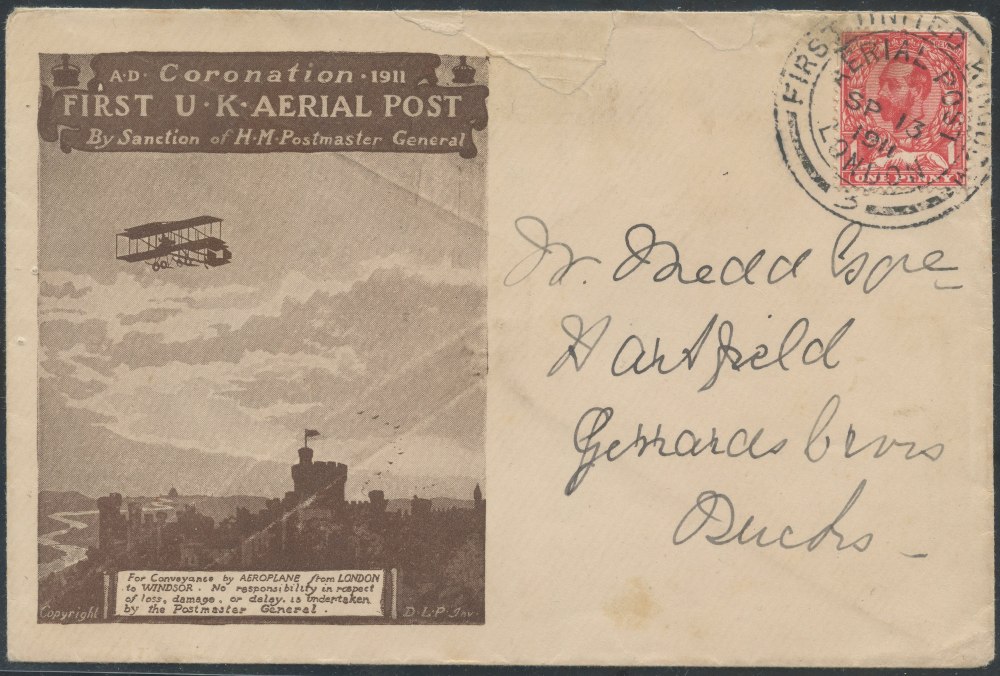 A·D· Coronation · 1911
FIRST U·K·AERIAL POST
By Sanction of H·M·Postmaster General
For Conveyance by AEROPLANE from LONDON
to WINDSOR. No responsibility in respect
of loss, damage, or delay, is undertaken
by the Postmaster General.
Copyright
D·L·P·Inv.
FIRST UNITED KINGDOM
AERIAL POST
SP 13
1911
LONDON
ONE PENNY
Medd Esqre
Hartfield
Gerrards Cross
Bucks